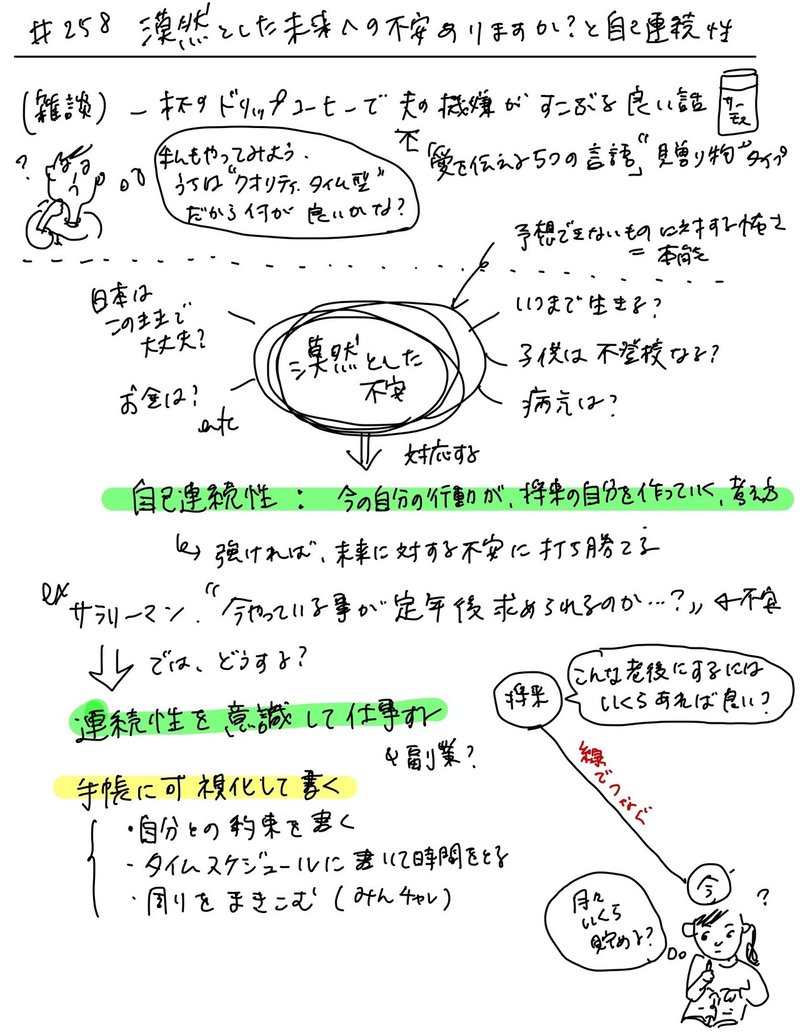 #258 漠然とした未来への不安ありますか?と自己連続性
(雑談) 一杯のドリップコーヒーで夫の機嫌がすこぶる良い話
サーモス
「愛を伝える5つの言語」"贈り物"タイプ
?
私もやってみよう、
うちは"クオリティ タイム型"
だから何が良いかな?
予想できないものに対する怖さ
= 本能
日本は
このままで
大丈夫?
お金は?
etc
漠然とした
不安
いつまで生きる?
子供は不登校なる?
病気は?
対応する
自己連続性: 今の自分の行動が、将来の自分を作っていく、考え方
↳ 強ければ、未来に対する不安に打ち勝てる
ex サラリーマン.“今やっている事が定年後求められるのか…?” ←不安
では、どうする?
連続性を意識して仕事する
& 副業?
手帳に可視化して書く
・自分との約束を書く
・タイムスケジュールに書いて時間をとる
・周りをまきこむ (みんチャレ)
将来
こんな老後にするには
いくらあれば良い?
線でつなぐ
今
?
月々
いくら
貯める?